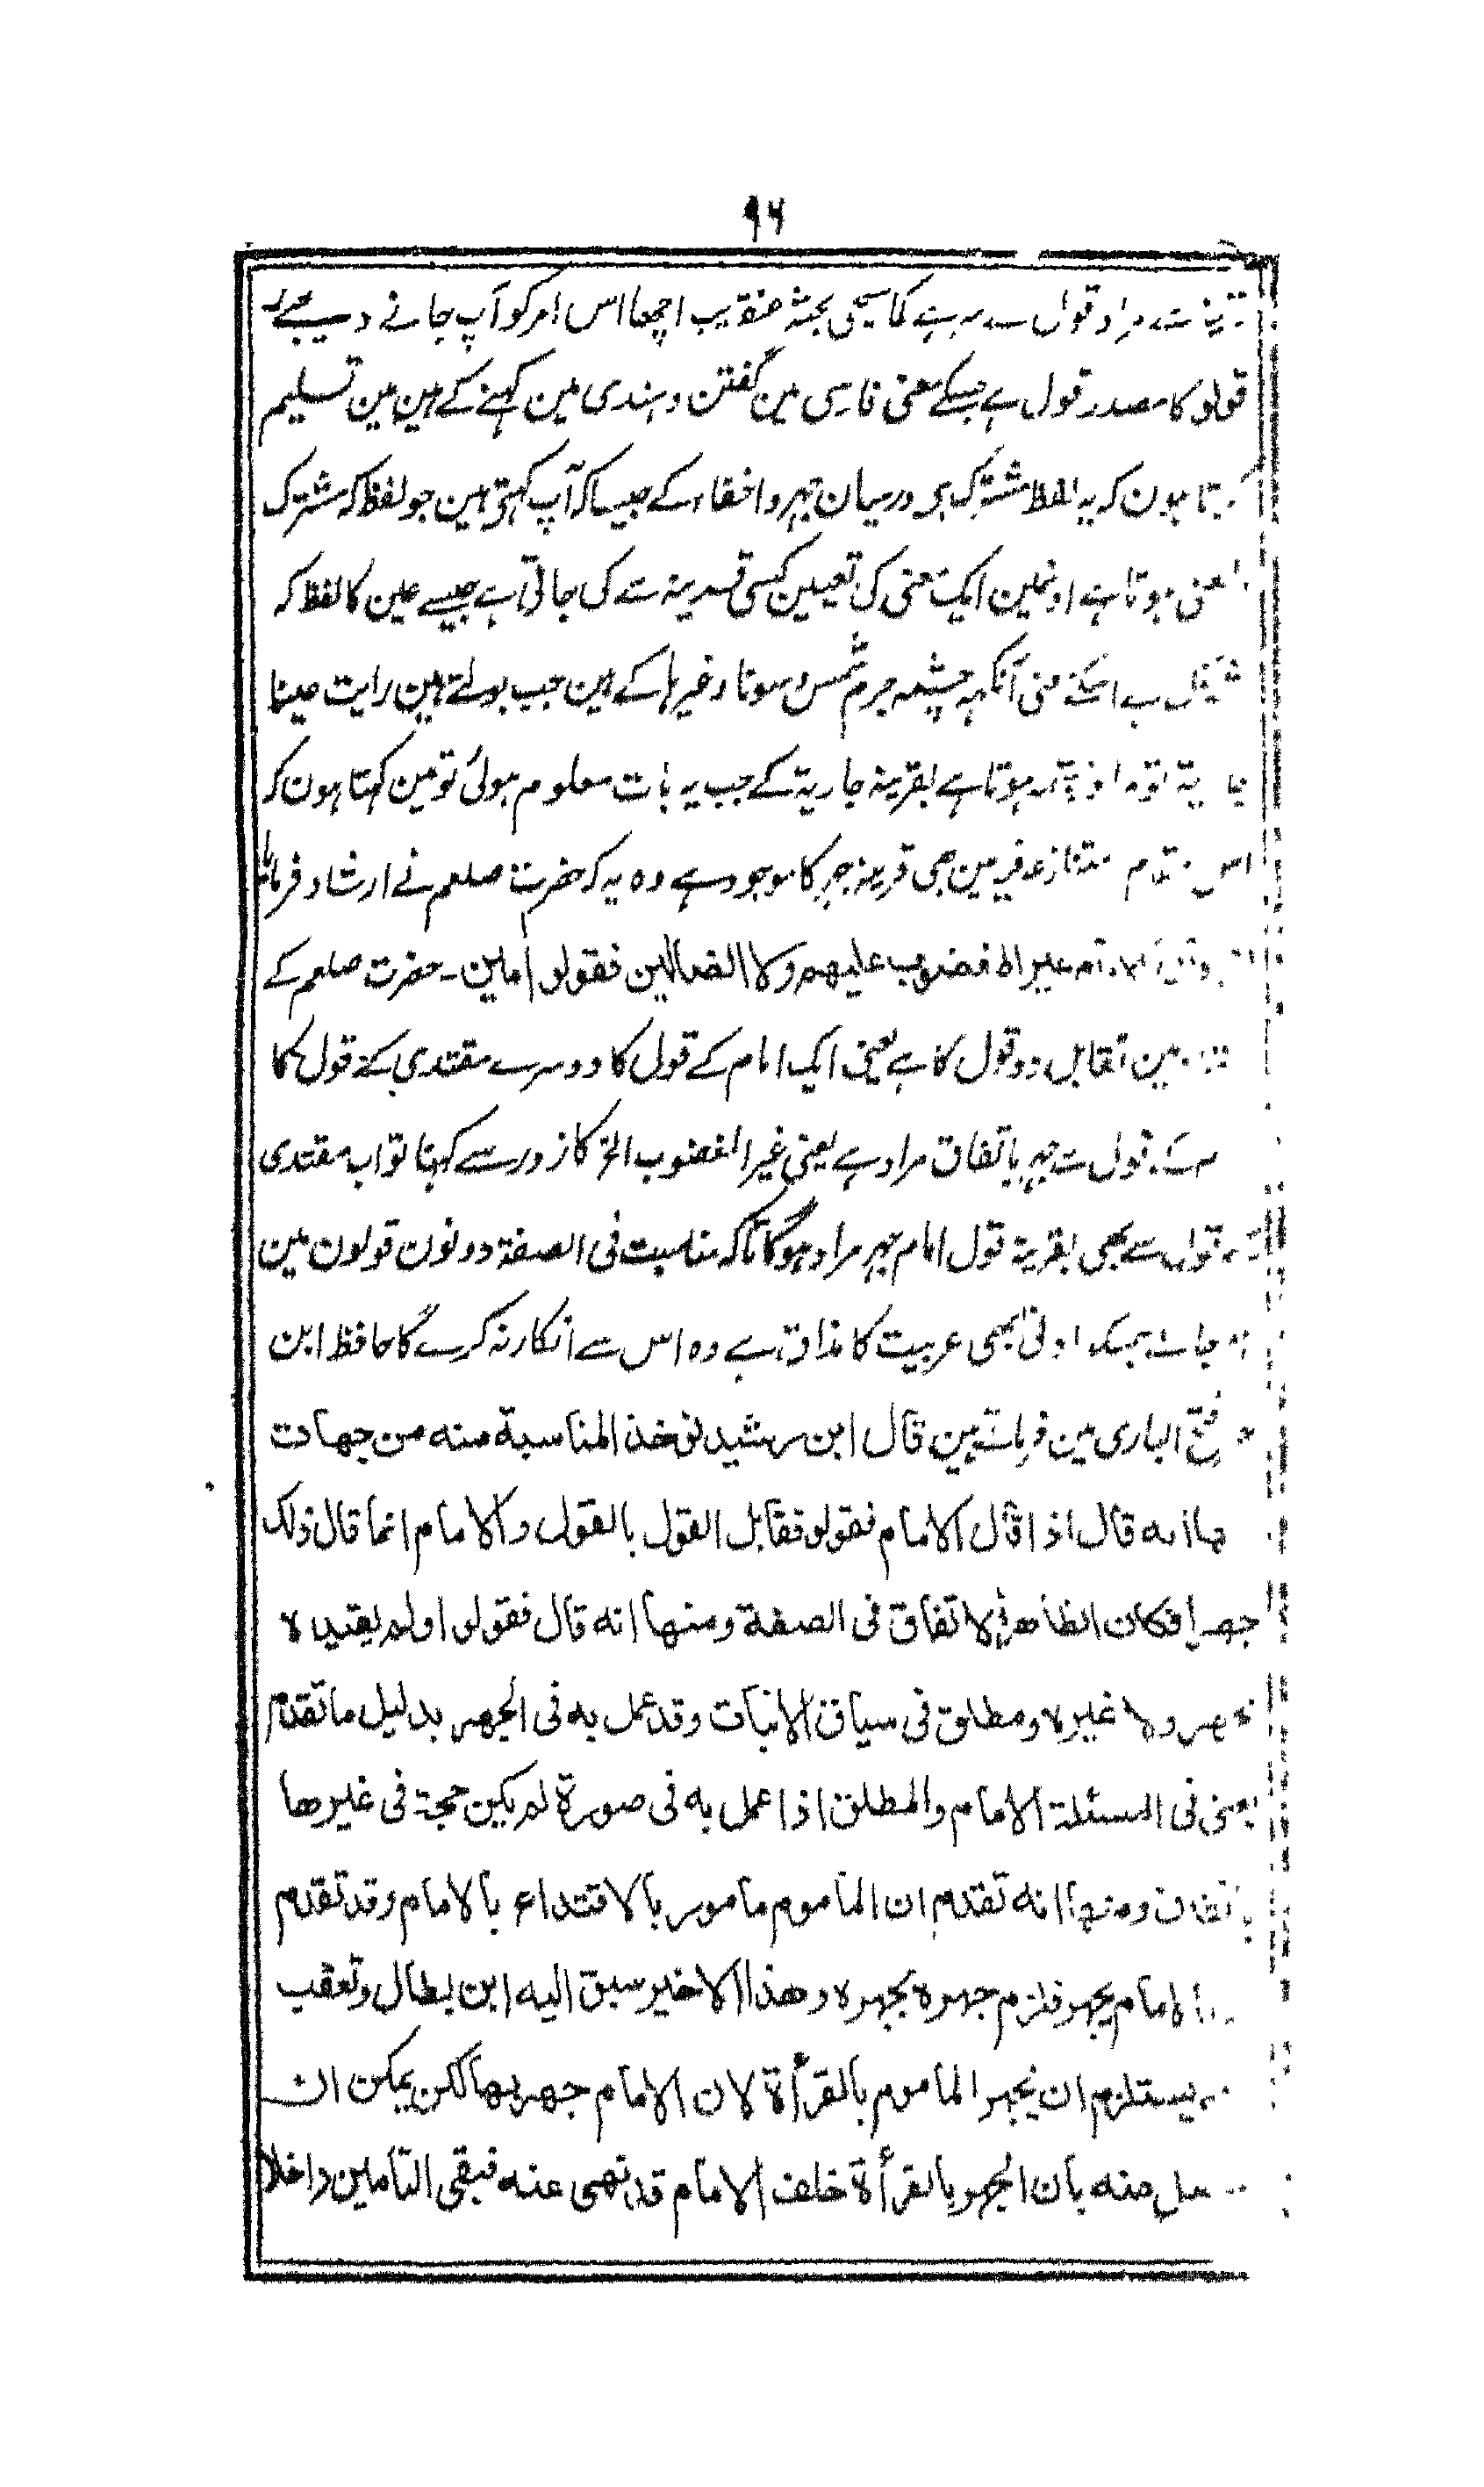 ۹۶
مراد قول سے ہے کما سیجئی بحثہ عنقریب اچھا اس امر کو آپ جانے دیجئے
قولو کا مصدر قول ہے جسکے معنی فارسی مین گفتن وہندی مین کہنے کے ہین مین تسلیم
کرتا ہون کہ یہ لفظ مشترک ہی درمیان جہر و اخفاء کے جیساکہ آپ کہتی ہین جو لفظ کہ مشترک
معنی ہوتا ہے اونمین ایک معنی کی تعیین کسی قرینہ سے کی جاتی ہے جیسے عین کا لفظ کہ
اسکے معنی آنکہہ چشمہ جرم شمس وسونا وغیرہا کے ہین جب بولتے ہین رایت عینا
ہوتا ہے بقرینہ جاریۃ کے جب یہ بات معلوم ہوئی تو مین کہتا ہون کہ
اس مقام متنازعہ فیہ مین بھی قرینہ جہر کا موجود ہے وہ یہ کہ حضرت صلعم نے ارشاد فرمایا
غیر المغضوب علیھم ولا الضالین فقولو اٰمین ۔ حضرت صلعم کے
مین تقابل دو قول کا ہے یعنی ایک امام کے قول کا دوسرے مقتدی کے قول کا
کے قول سے جہر باتفاق مراد ہے یعنی غیر المغضوب الخ کا زور سے کہنا تو اب مقتدی
کے قول سے بھی بقرینۃ قول امام جہر مراد ہوگا تاکہ مناسبت فی الصفۃ دونون قولون مین
جائے جسکو ادنیٰ بھی عربیت کا مذاق ہے وہ اس سے انکار نہ کرے گا حافظ ابن
فتح الباری مین فرماتے ہین قال ابن رشید توخذ المناسبۃ منہ من جہات
منہا انہ قال اذا قال الامام فقولو فقابل القول بالقول والامام انما قال ذلک
جھرا فکان الظاھر الاتفاق فی الصفۃ ومنھا انہ قال فقولوا ولم یقیدہ
بجھر ولا غیرہ ومطلق فی سیاق الاثبات وقد عمل بہ فی الجھر بدلیل ما تقدم
یعنی فی المسئلۃ الامام والمطلق اذا عمل بہ فی صورۃ لم یکن حجۃ فی غیرھا
باتفاق ومنھا انہ تقدم ان الماموم مامور بالاقتداء بالامام وقد تقدم
الامام یجھر فلزم جھرہ بجھرہ وھذا الاخیر سبق الیہ ابن بطال وتعقب
یستلزم ان یجھر الماموم بالقرأۃ لان الامام جھر بھا لکن یمکن ان
منہ بان الجھر بالقرأۃ خلف الامام قد نھی عنہ فبقی التامین داخلا